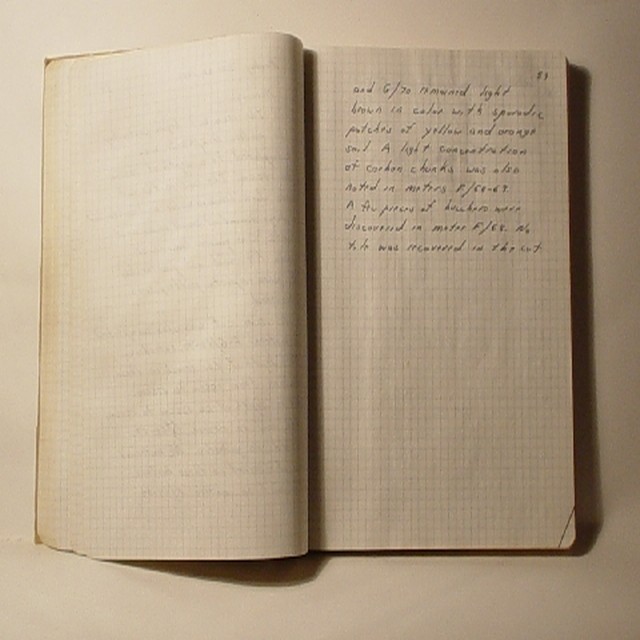 and G/70 remained light
brown in color with sporadic
patches of yellow and orange
soil. A light concentration
of carbon chunks was also
noted in meters F/68-69.
A few pieces of bucchero were
discovered in meter F/68. No
tile was recovered in the cut